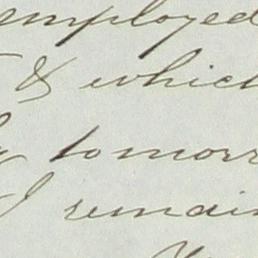 employed
& which
tomorr
I remain